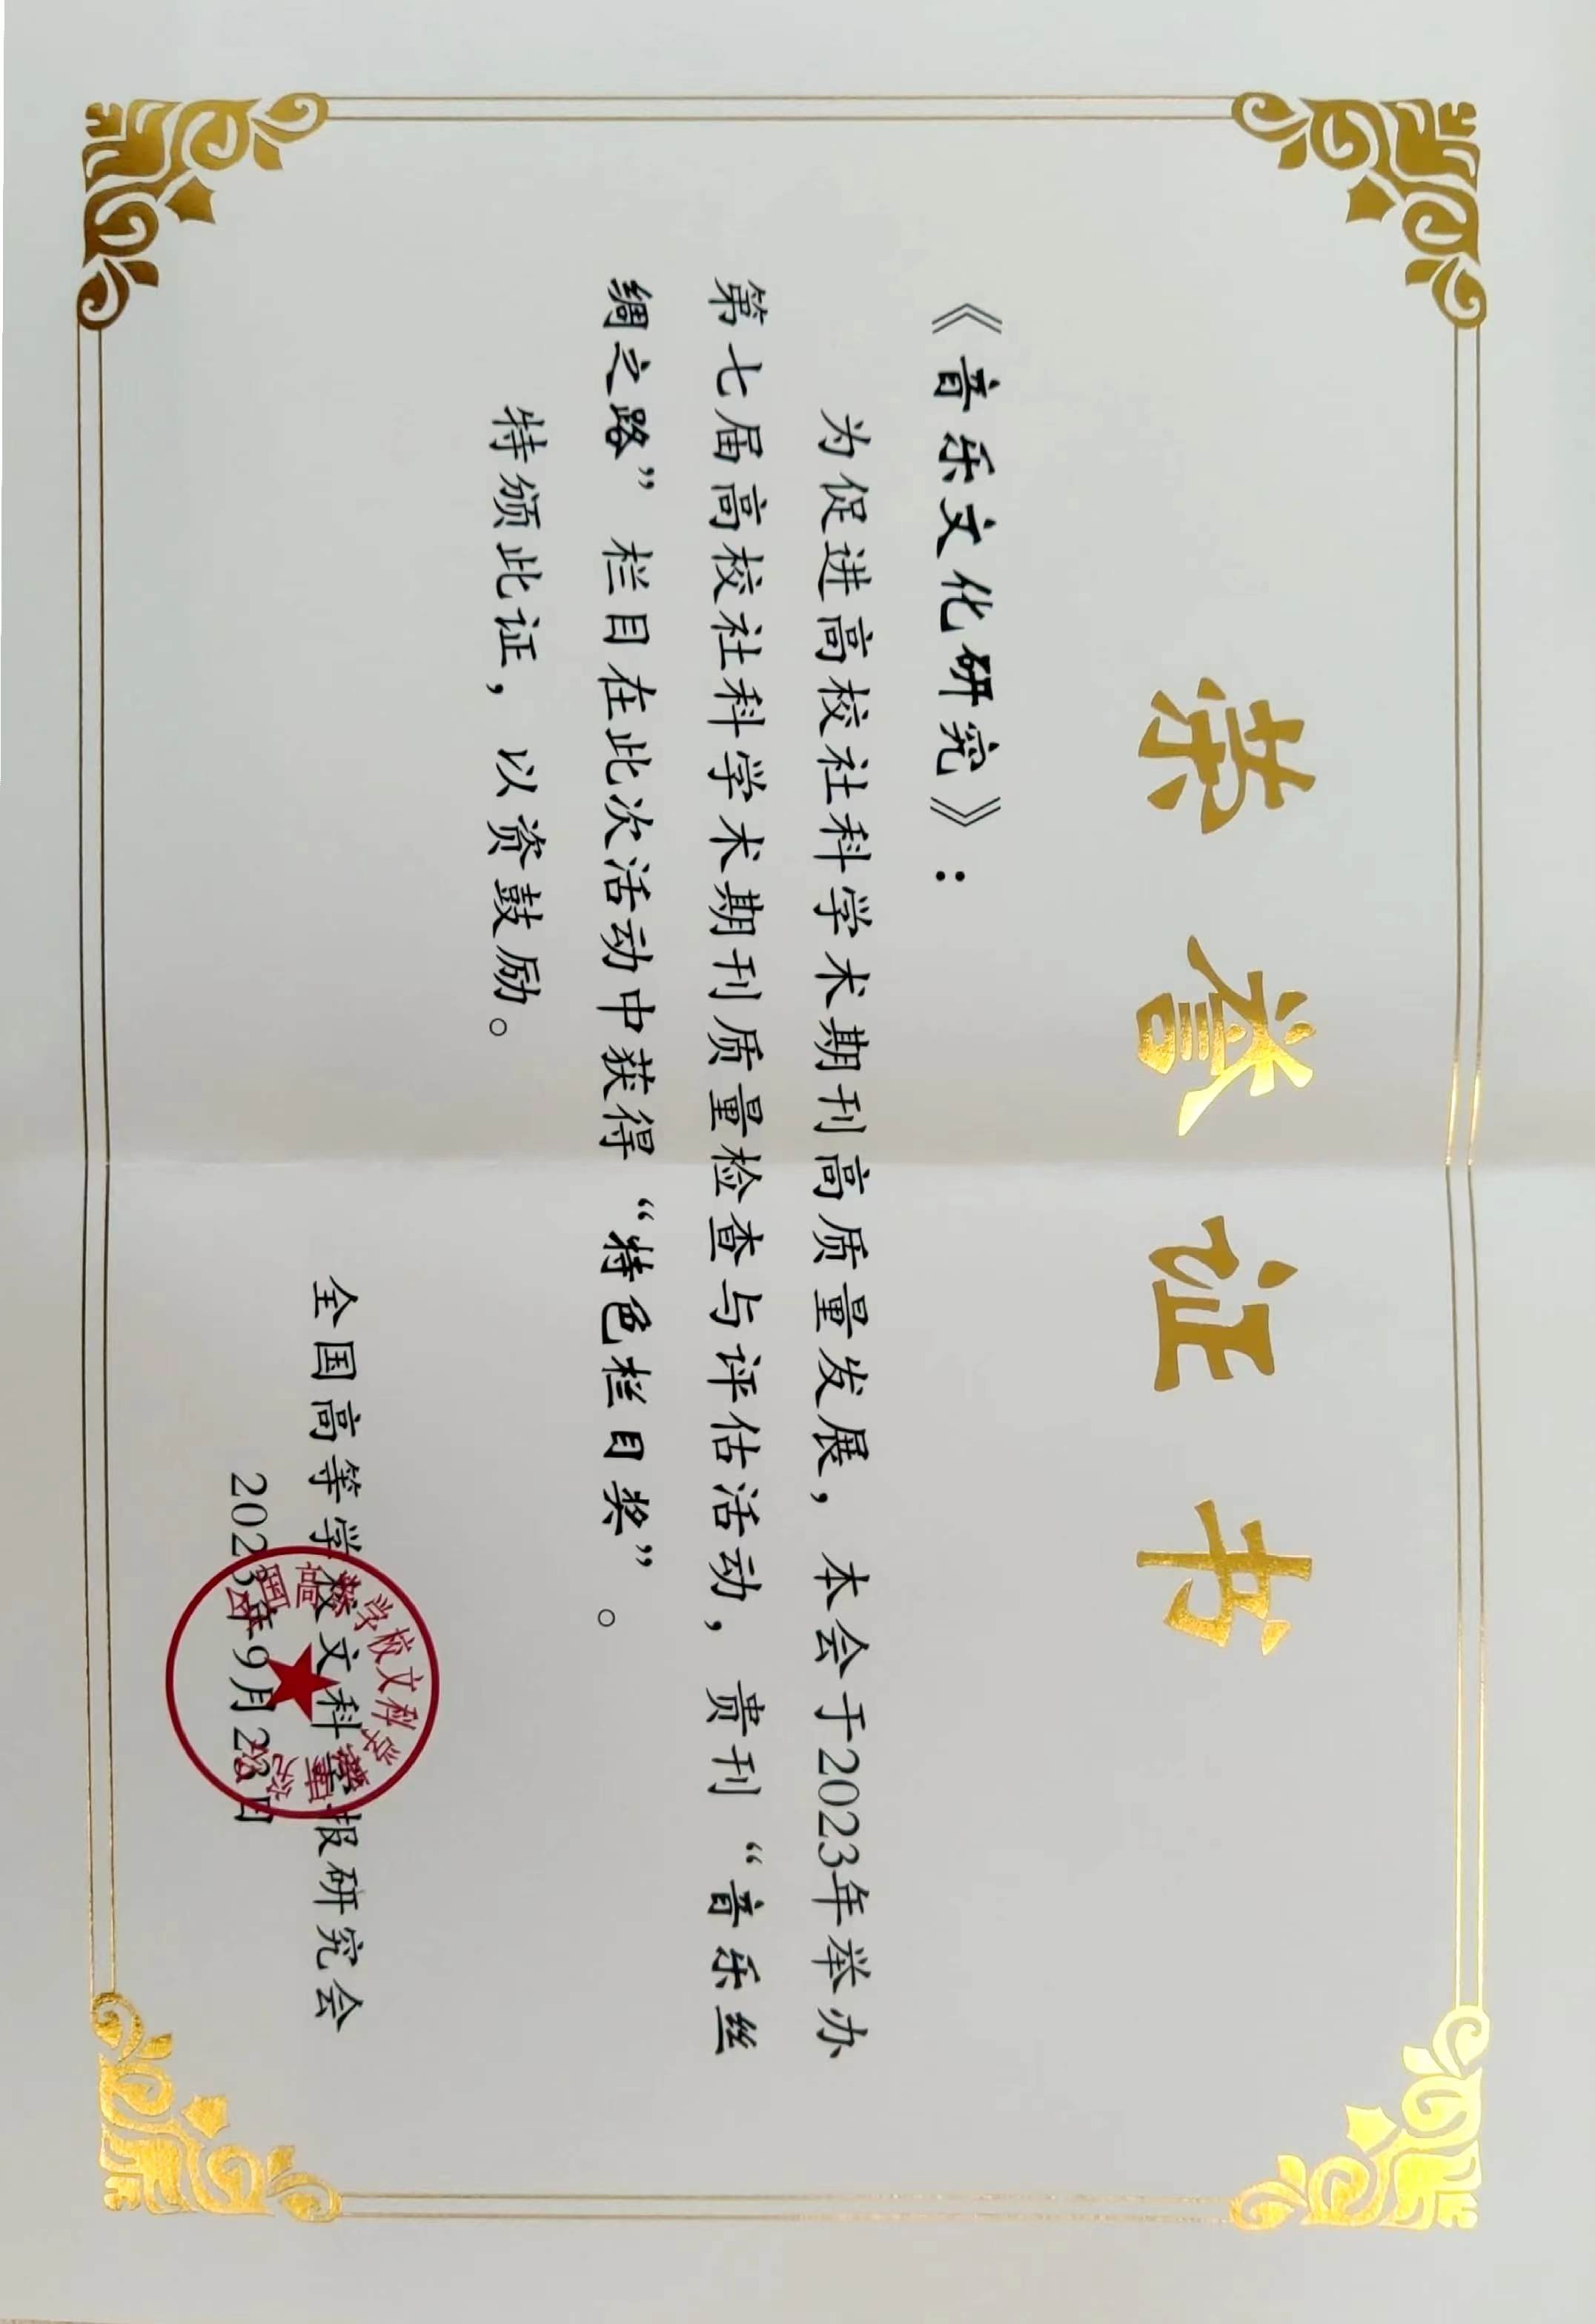 荣誉证书
《音乐文化研究》：
为促进高校社科学术期刊高质量发展，本会于2023年举办
第七届高校社科学术期刊质量检查与评估活动，贵刊“音乐丝
绸之路”栏目在此次活动中获得“特色栏目奖”。
特颁此证，以资鼓励。
全国高等学校文科学报研究会
2023年9月23日